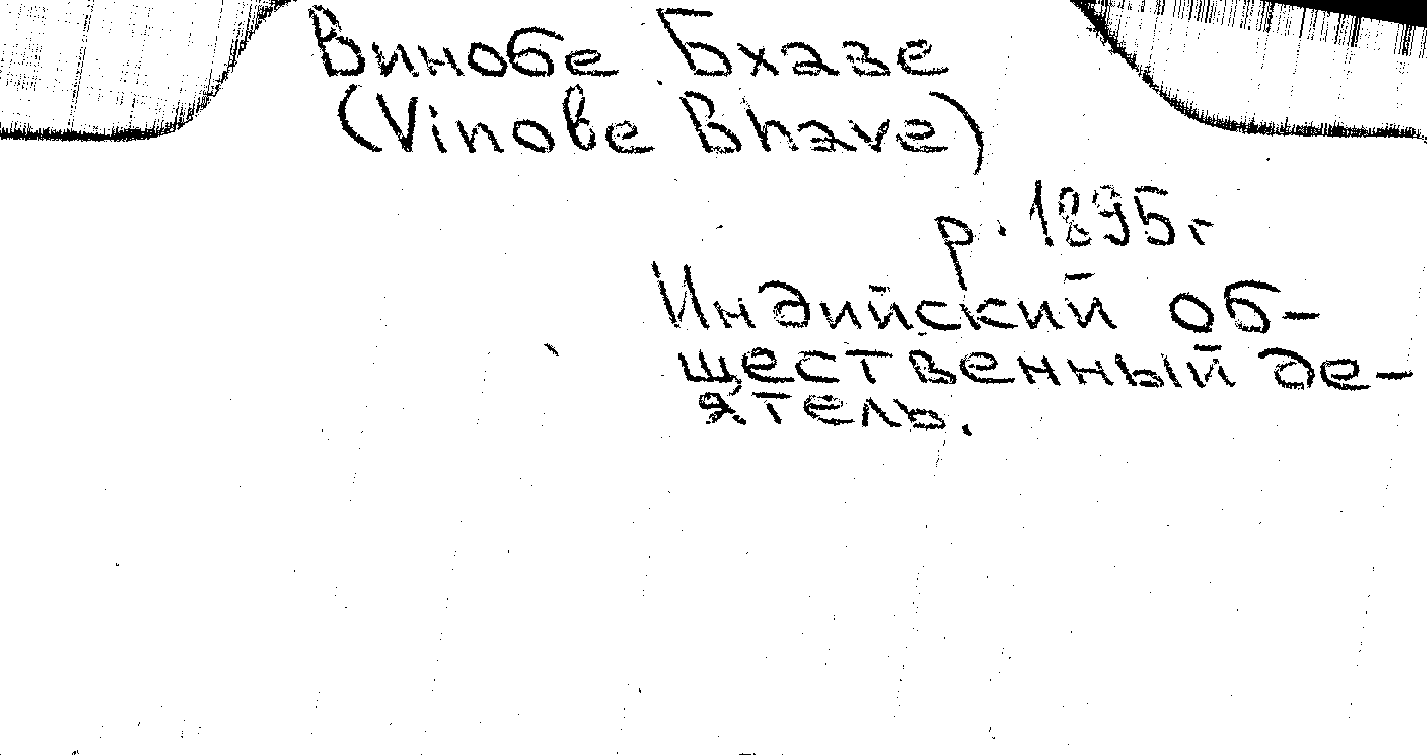 Винобе Бхаве
(Vinobe Bhave)
р. 1895 г
Индийский об-
щественный де-
ятель.